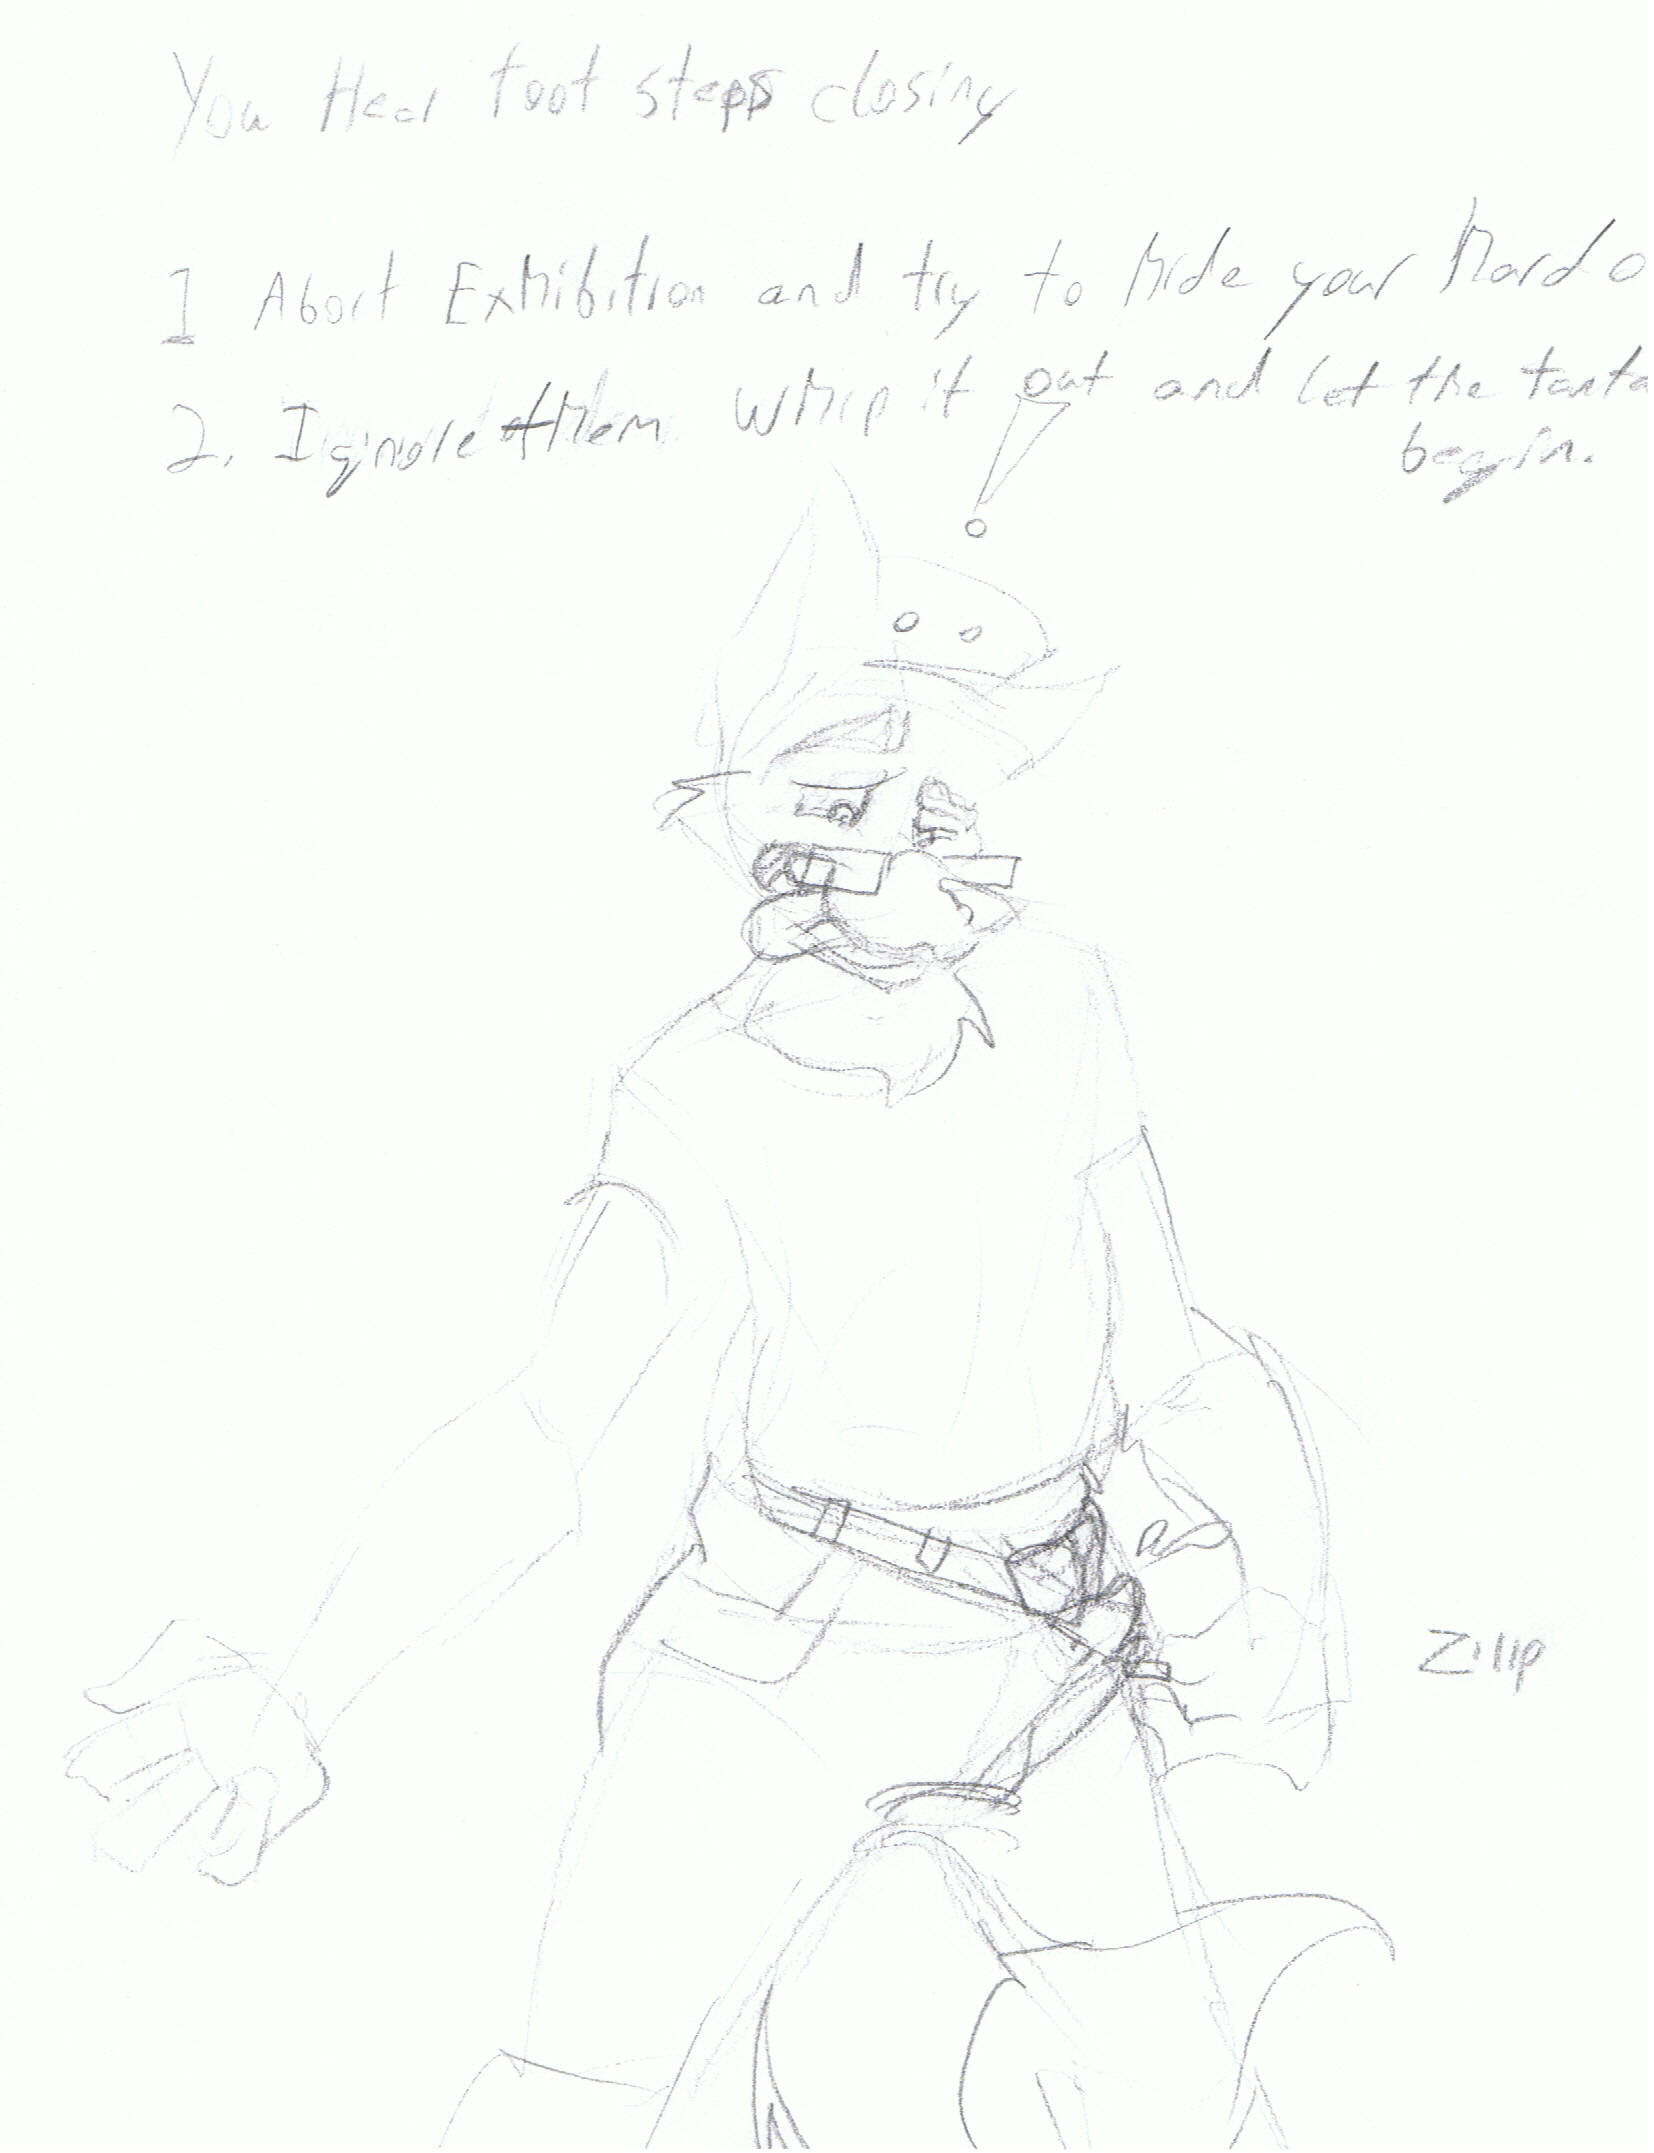 You Hear foot steps closing
1 Abort Exhibition and try to hide your Hardo
2. Ignore them whip it out and let the
begin.
Zillp